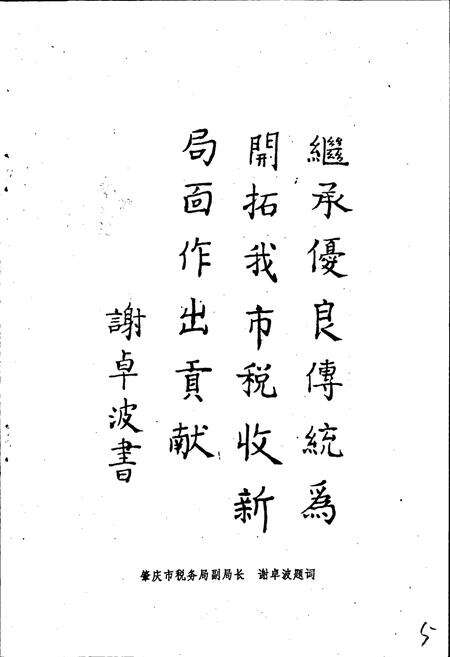 繼承優良傳統爲
開拓我市税收新
局面作出貢献
謝卓波書
肇庆市税务局副局长 谢卓波题词
5